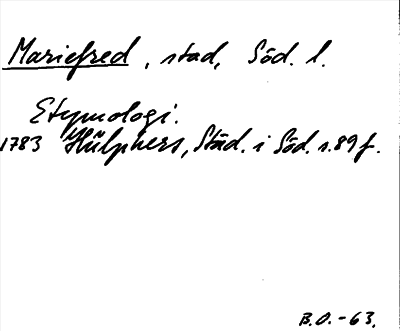 Mariefred, stad, Söd. l.
Etymologi.
1783 Hülphers, Städ. i Söd. s. 89 f.
B.O.-63.